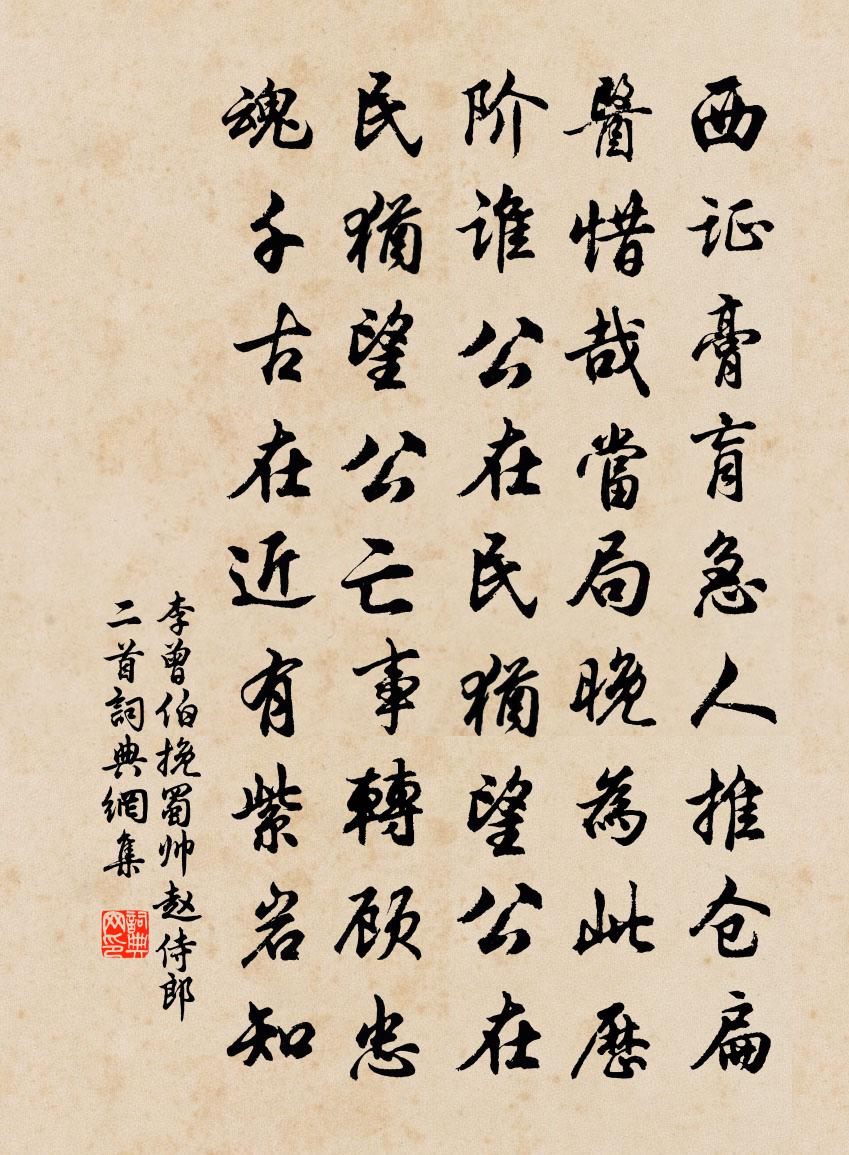 西证膏肓急人推仓扁
醫惜哉當局晚為此厯
阶谁公在民猶望公在
民猶望公亡事轉顾忠
魂千古在近有紫岩知
李曾伯挽蜀帅赵侍郎
二首詞典網集
詞典网印